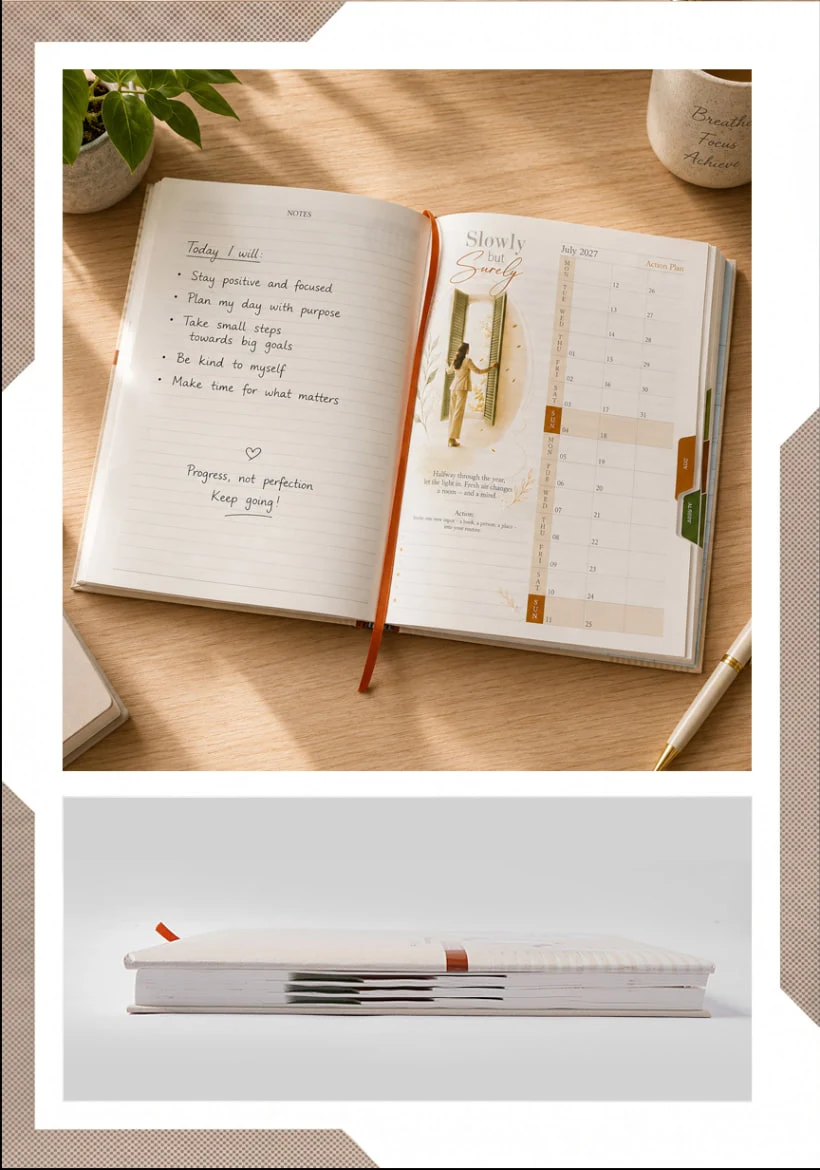 NOTES
Today I will:
• Stay positive and focused
• Plan my day with purpose
• Take small steps
towards big goals
• Be kind to myself
• Make time for what matters
♡
Progress, not perfection
Keep going!
Slowly
but
Surely
Halfway through the year,
let the light in. Fresh air changes
a room – and a mind.
Action:
into your routine
July 2027
Action Plan
MON
12
26
TUE
13
27
WED
14
28
THU
01
15
29
FRI
02
16
30
SAT
03
17
31
SUN
04
18
MON
05
19
TUE
06
20
WED
07
21
THU
08
22
FRI
09
23
SAT
10
24
SUN
11
25
Breathe
Focus
Achieve